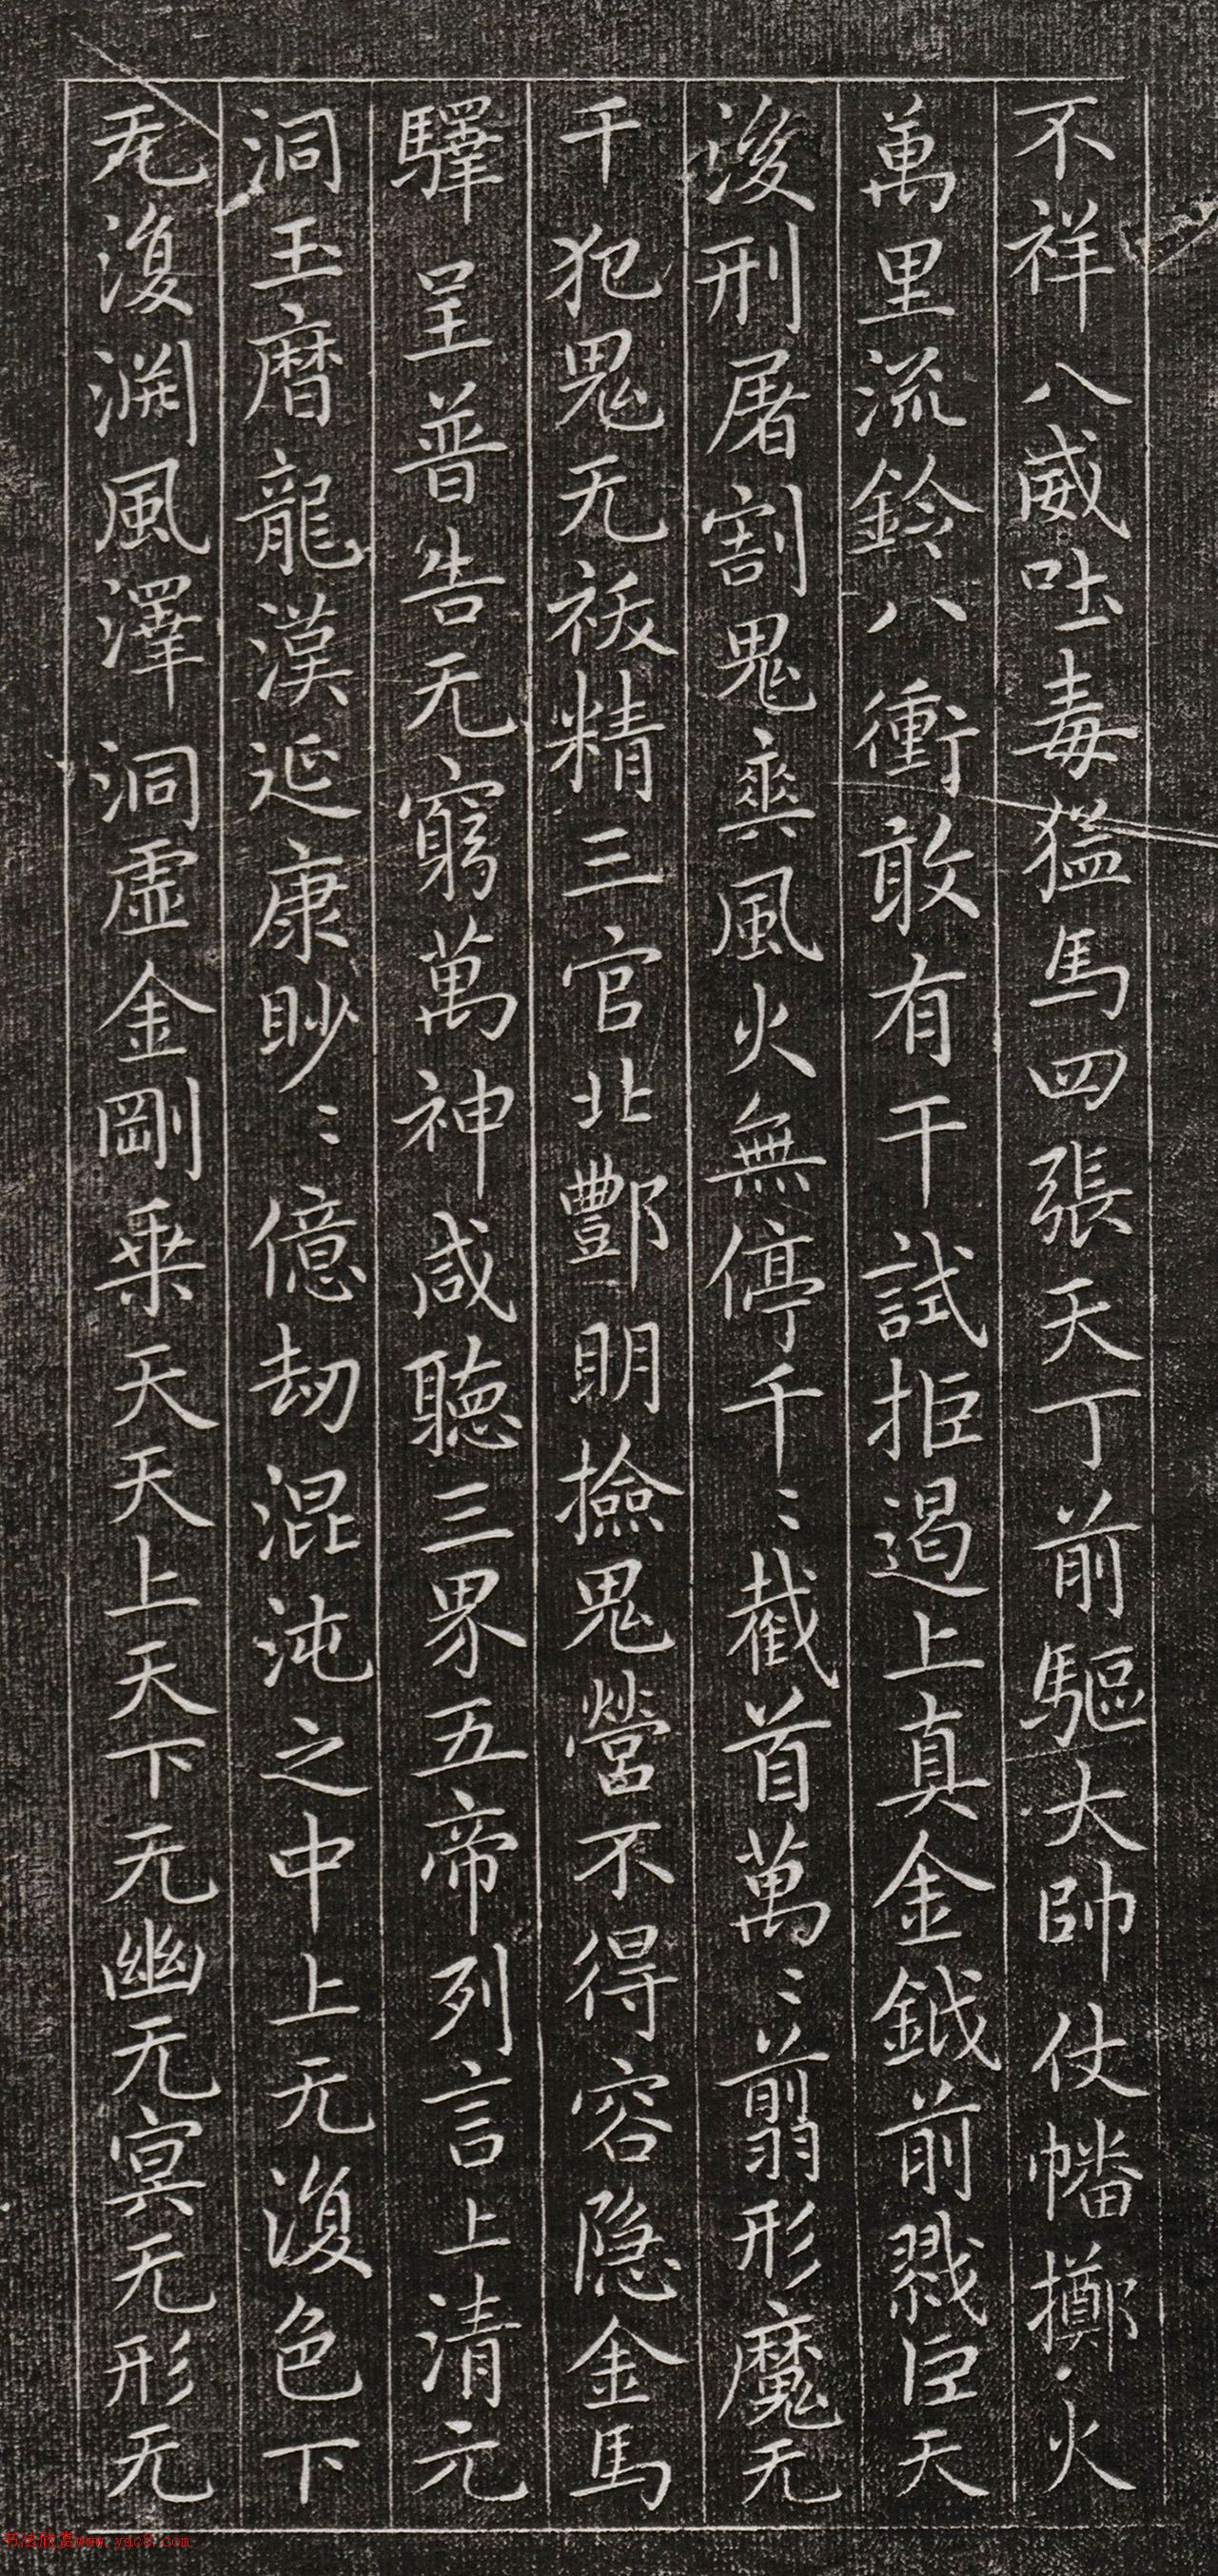 不祥八威吐毒猛馬四張天丁前驅大帥仗幡擲火
萬里流鈴八衝敢有干試拒遏上真金鉞前戮巨天
後刑屠割鬼爽風火無停千〻截首萬〻翦形魔无
干犯鬼无祅精三官北酆明撿鬼營不得容隐金馬
驛呈普告无窮萬神咸聴三界五帝列言上清元
洞玉曆龍漢延康眇〻億劫混沌之中上无復色下
无復渊風澤洞虛金剛乗天天上天下无幽无冥无形无
书法欣赏www.yac8.com